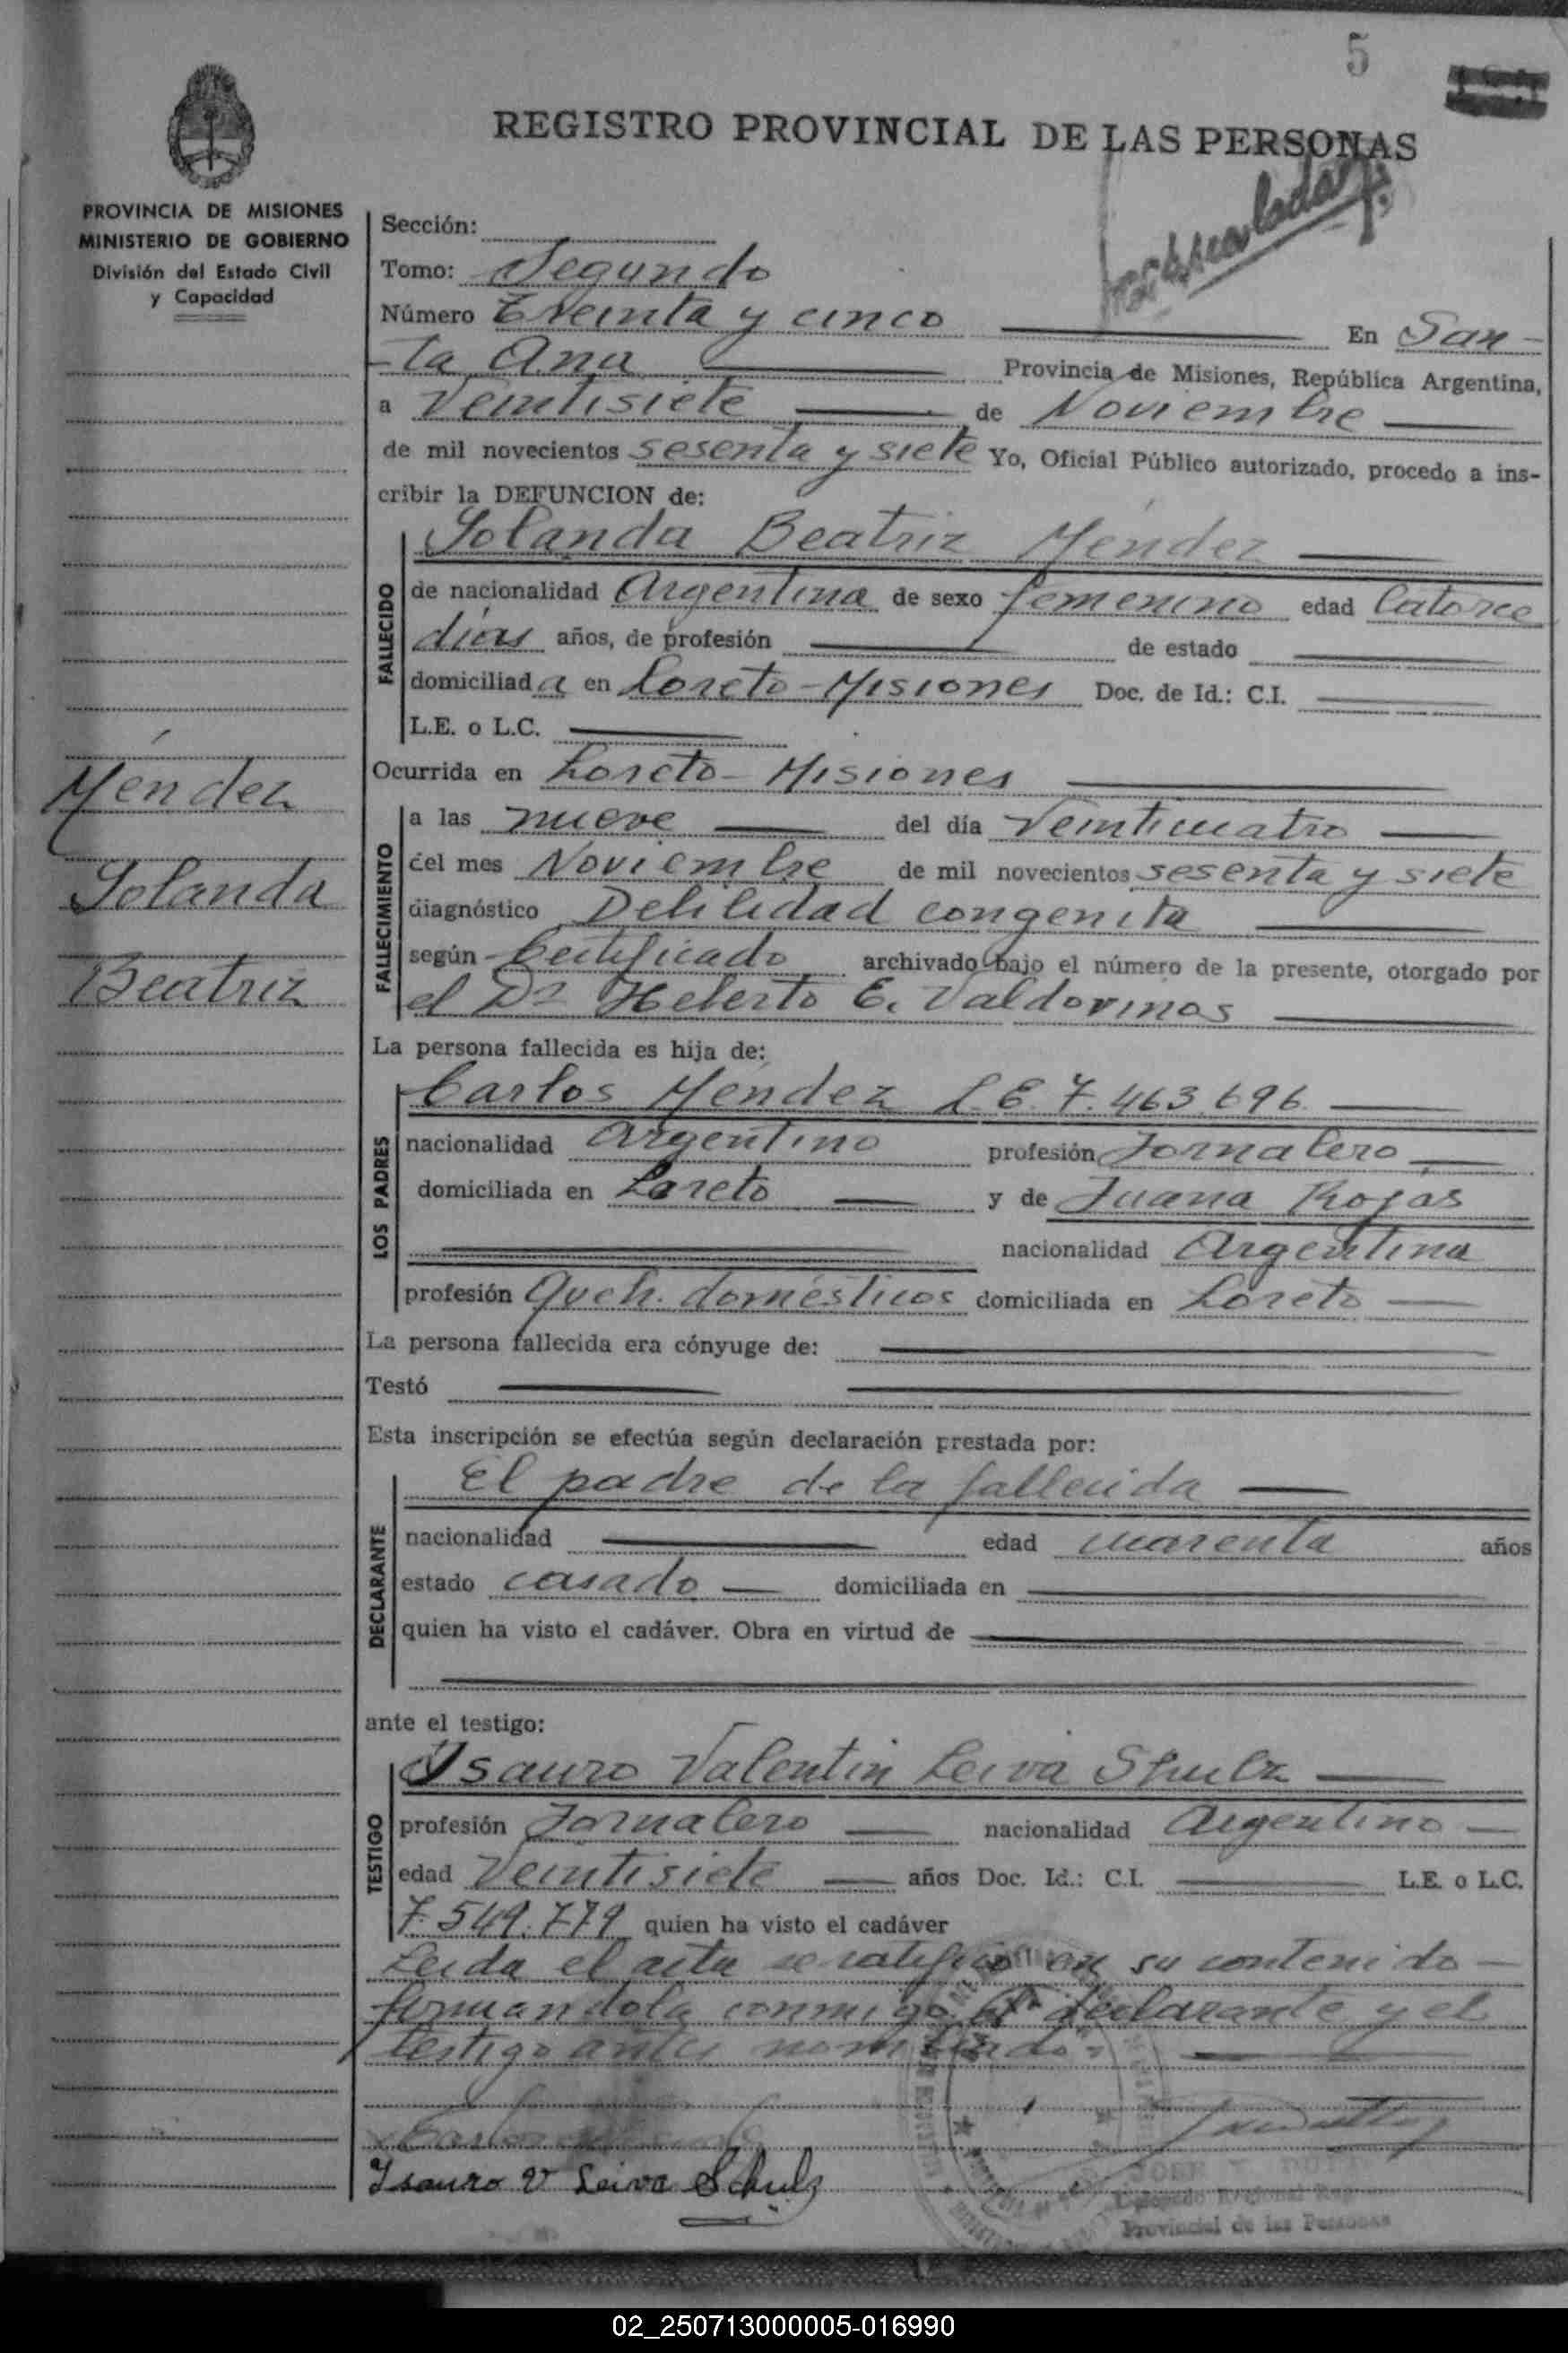 5
REGISTRO PROVINCIAL DE LAS PERSONAS
PROVINCIA DE MISIONES
MINISTERIO DE GOBIERNO
División del Estado Civil
y Capacidad
Sección:
Tomo: Segundo
Número Treinta y cinco En San-
ta Ana Provincia de Misiones, República Argentina,
a Veintisiete de Noviembre
de mil novecientos sesenta y siete Yo, Oficial Público autorizado, procedo a ins-
cribir la DEFUNCION de:
Yolanda Beatriz Méndez
FALLECIDO
de nacionalidad Argentina de sexo femenino edad Catorce
días años, de profesión de estado
domiciliada en Loreto-Misiones Doc. de Id.: C.I.
L.E. o L.C.
Méndez
Yolanda
Beatriz
Ocurrida en Loreto-Misiones
FALLECIMIENTO
a las nueve del día Veinticuatro
del mes Noviembre de mil novecientos sesenta y siete
diagnóstico Debilidad congenita
según Certificado archivado bajo el número de la presente, otorgado por
el Dr Heberto E. Valdovinos
La persona fallecida es hija de:
LOS PADRES
Carlos Méndez L.E. 7.463.696
nacionalidad Argentino profesión Jornalero
domiciliada en Loreto y de Juana Rojas
nacionalidad Argentina
profesión Queh. domésticos domiciliada en Loreto
La persona fallecida era cónyuge de:
Testó
Esta inscripción se efectúa según declaración prestada por:
DECLARANTE
El padre de la fallecida
nacionalidad edad cuarenta años
estado casado domiciliada en
quien ha visto el cadáver. Obra en virtud de
ante el testigo:
TESTIGO
Isauro Valentin Leiva Shulz
profesión Jornalero nacionalidad Argentino
edad Veintisiete años Doc. Id.: C.I. L.E. o L.C.
7.549.779 quien ha visto el cadáver
Leida el acta se ratifico en su contenido
firmandola conmigo el declarante y el
testigo antes nombrado
Carlos
Isauro V Leiva Schulz
JOSE
Delegado Regional Reg.
Provincial de las Personas
02_250713000005-016990